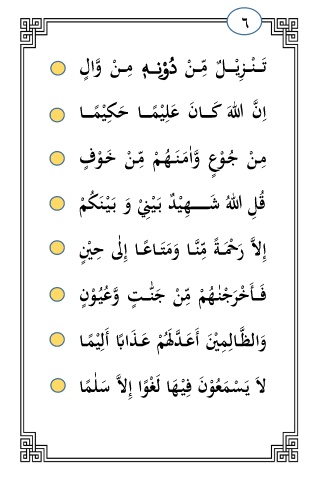 ٦
تَـنْـزِيْـلٌ مِّـنْ دُوْنِـهٖ مِـنْ وَّالٍ
اِنَّ اللهَ كَـانَ عَلِيْمًـا حَكِيْمًـا
مِـنْ جُـوْعٍ وَّاٰمَنَـهُـمْ مِّـنْ خَـوْفٍ
قُـلِ اللهُ شَـهِـيْدٌ بَيْنِيْ وَ بَيْنَكُمْ
اِلاَّ رَحْمَـةً مِّنَّـا وَمَتَـاعًـا اِلٰى حِيْنٍ
فَـأَخْرَجْنٰهُمْ مِّـنْ جَنّٰـتٍ وَّعُيُوْنٍ
وَالظَّـالِمِيْنَ أَعَـدَّلَهُمْ عَـذَابًـا أَلِيْمًـا
لاَ يَسْمَعُوْنَ فِيْهَا لَغْوًا اِلاَّ سَلٰمًا